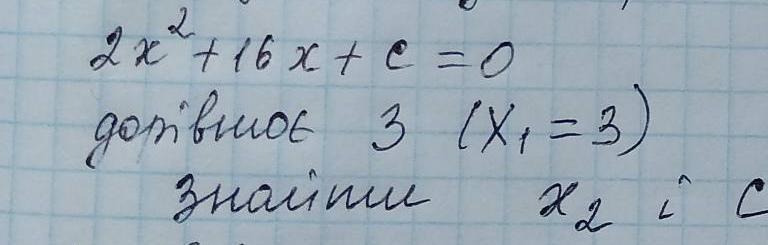 2x² + 16x + c = 0
дорівнює 3 (x₁ = 3)
знайти x₂ і c